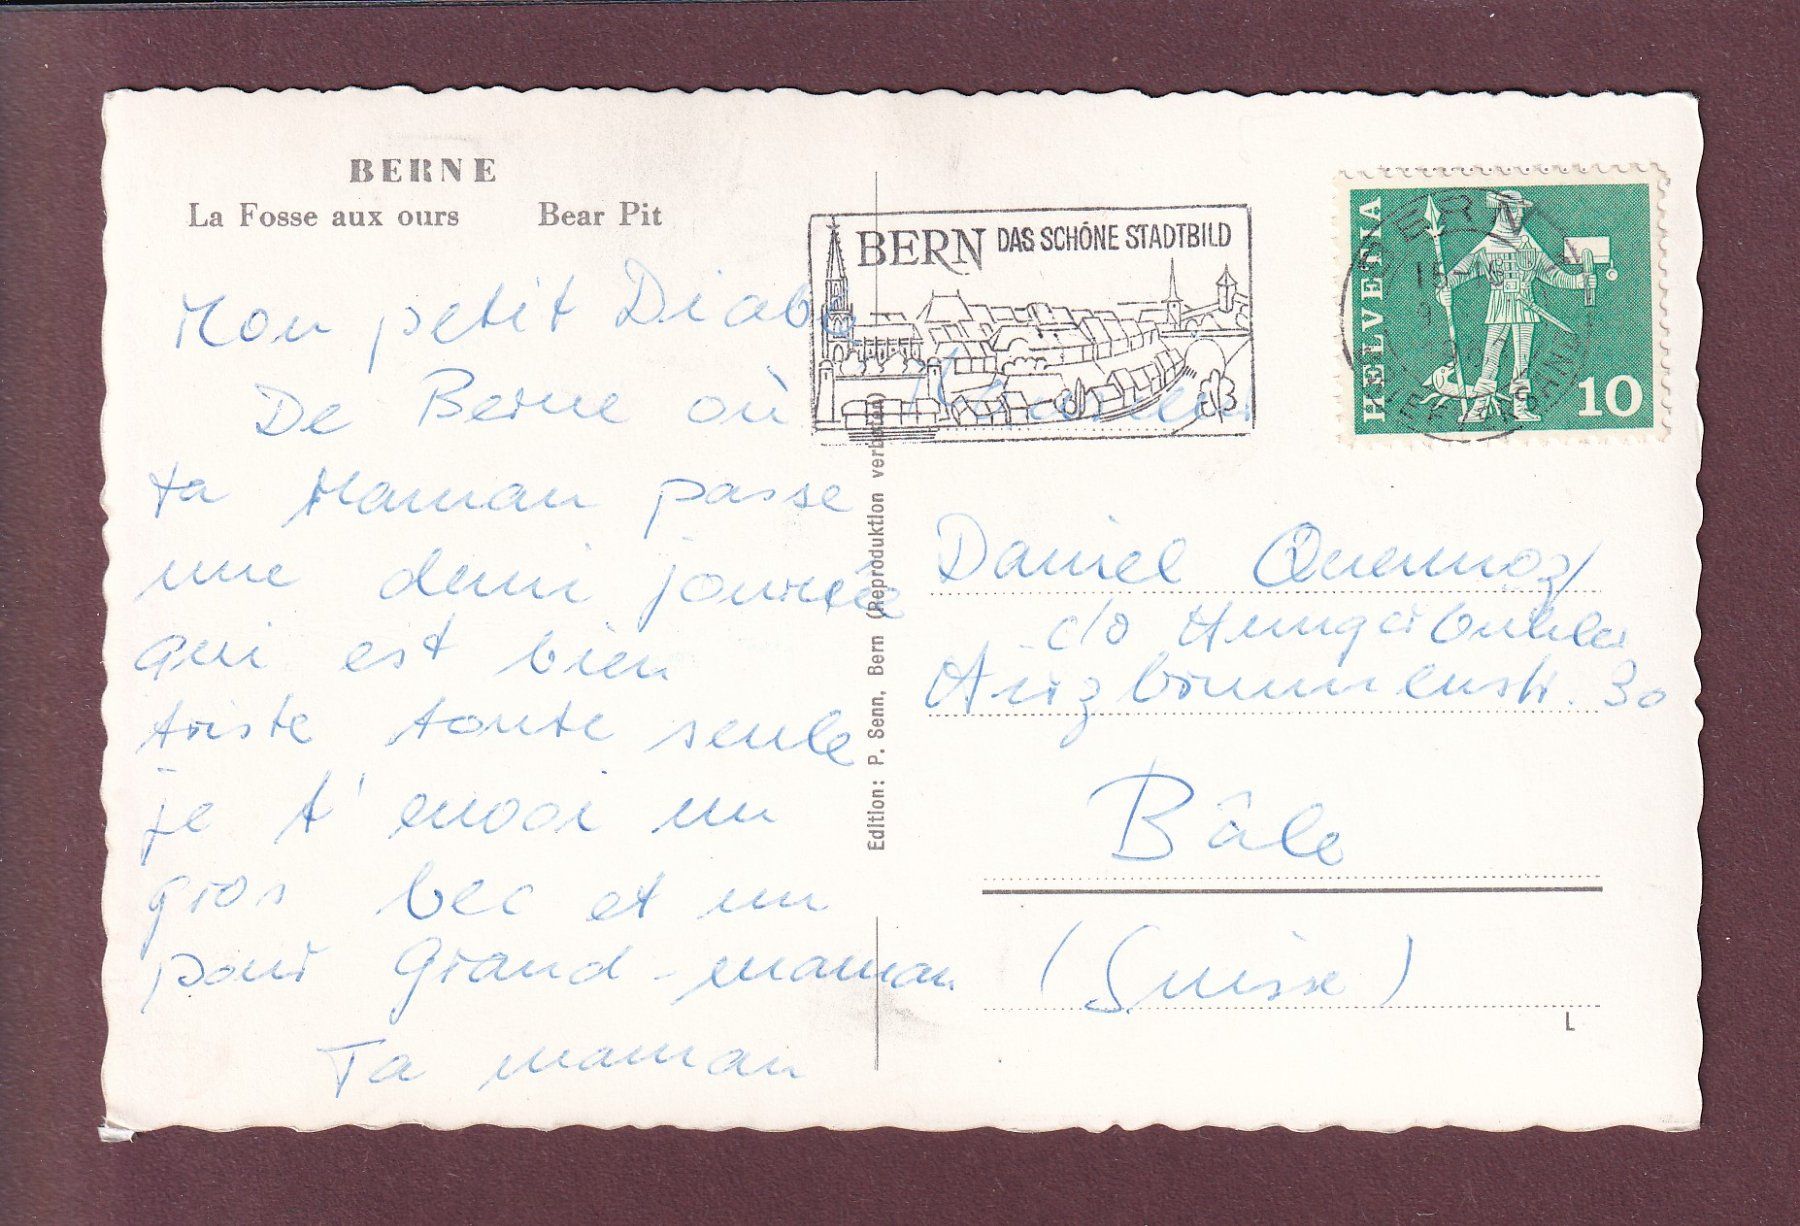 BERNE
La Fosse aux ours Bear Pit
BERN DAS SCHÖNE STADTBILD
HELVETIA
10
BERN
Mon petit Diable
De Berne où
ta Maman passe
une demi journée
qui est bien
triste toute seule
je t'envoi un
gros bec et un
pour Grand-maman
Ta maman
Edition: P. Senn, Bern (Reproduktion verboten)
Monsieur
Daniel Quennoz
c/o Hungerbühler
Arzbrunnenstr. 30
Bâle
(Suisse)
L